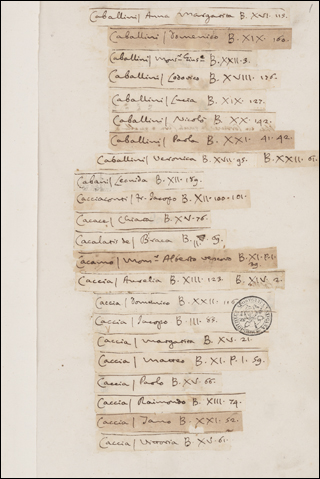 Caballini / Anna Margarita B. XVI. 115.
Caballini / Domenico B. XIX. 160.
Caballini / B. XXII. 3.
Caballini / Lodovico B. XVIII. 176.
Caballini / Luca B. XIX. 127.
Caballini / Nicolò B. XX. 142.
Caballini / Paola B. XXI. 41.42
Caballini / Veronica B. XVII. 95. B. XXII.
Cabani / Leonida B. XII. 159.
Cacciaconti / fr. Jacopo B. XII. 100.101.
Cacace / Chiara B. XV. 76.
Braca B.
Cacamo / Alberto B. XI. P. I.
Caccia / Aurelia B. XIII. 127. B. XIV. 2.
Caccia / Domenico B. XXII.
Caccia / Jacopo B. III. 88.
Caccia / Margarita B. XV. 21.
Caccia / Matteo B. XI. P. I. 59.
Caccia / Paolo B. XV. 66.
Caccia / Raimondo B. XIII. 74.
Caccia / B. XXI. 52.
Caccia / Vittoria B. XV. 61.